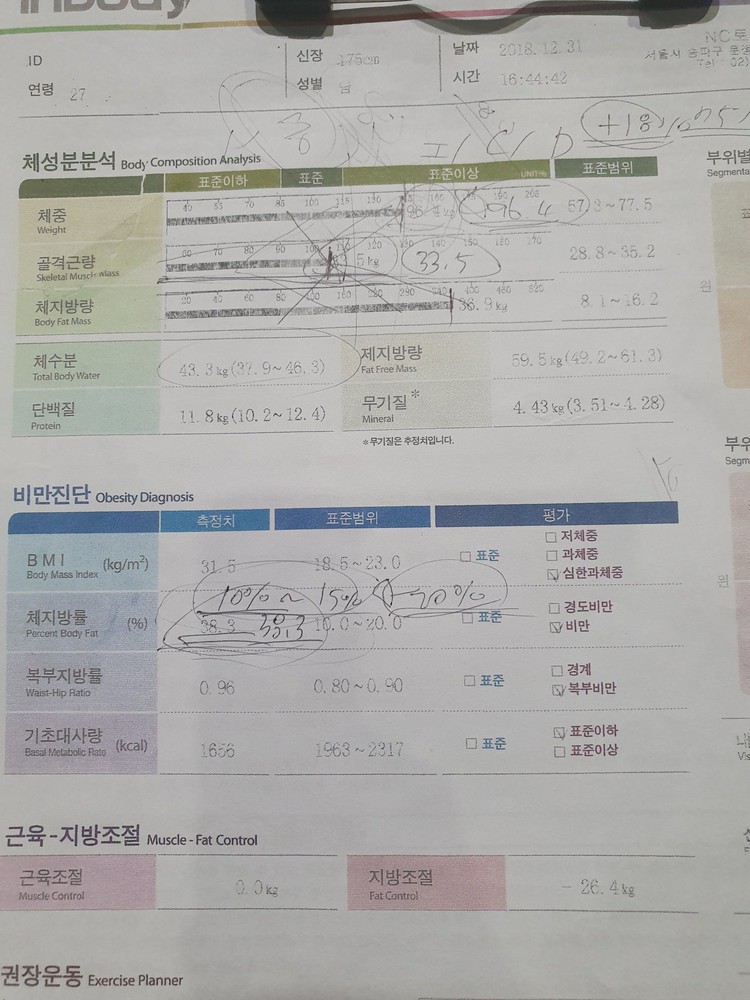 InBody
ID
신장 175cm
날짜 2018.12.31
NC토
서울시 송파구
Tel 02)
연령 27
성별 남
시간 16:44:42
체성분분석 Body Composition Analysis
부위별
Segmenta
표준이하 표준 표준이상 UNIT:% 표준범위
체중 Weight
96.4 57.3~77.5
골격근량 Skeletal Muscle Mass
33.5 28.8~35.2
체지방량 Body Fat Mass
36.9 kg 8.1~16.2
체수분 Total Body Water 43.3 kg (37.9~46.3)
제지방량 Fat Free Mass 59.5 kg (49.2~61.3)
단백질 Protein 11.8 kg (10.2~12.4)
무기질 * Mineral 4.43 kg (3.51~4.28)
*무기질은 추정치입니다.
부위
Segm
비만진단 Obesity Diagnosis
측정치 표준범위 평가
BMI (kg/m²) Body Mass Index 31.5 18.5~23.0 표준 저체중 과체중 심한과체중
10% ~ 15% 20%
체지방률 (%) Percent Body Fat 38.3 10.0~20.0 표준 경도비만 비만
복부지방률 Waist-Hip Ratio 0.96 0.80~0.90 표준 경계 복부비만
기초대사량 (kcal) Basal Metabolic Rate 1656 1963~2317 표준 표준이하 표준이상
Vis
근육-지방조절 Muscle - Fat Control
근육조절 Muscle Control 0.0 kg
지방조절 Fat Control - 26.4 kg
권장운동 Exercise Planner